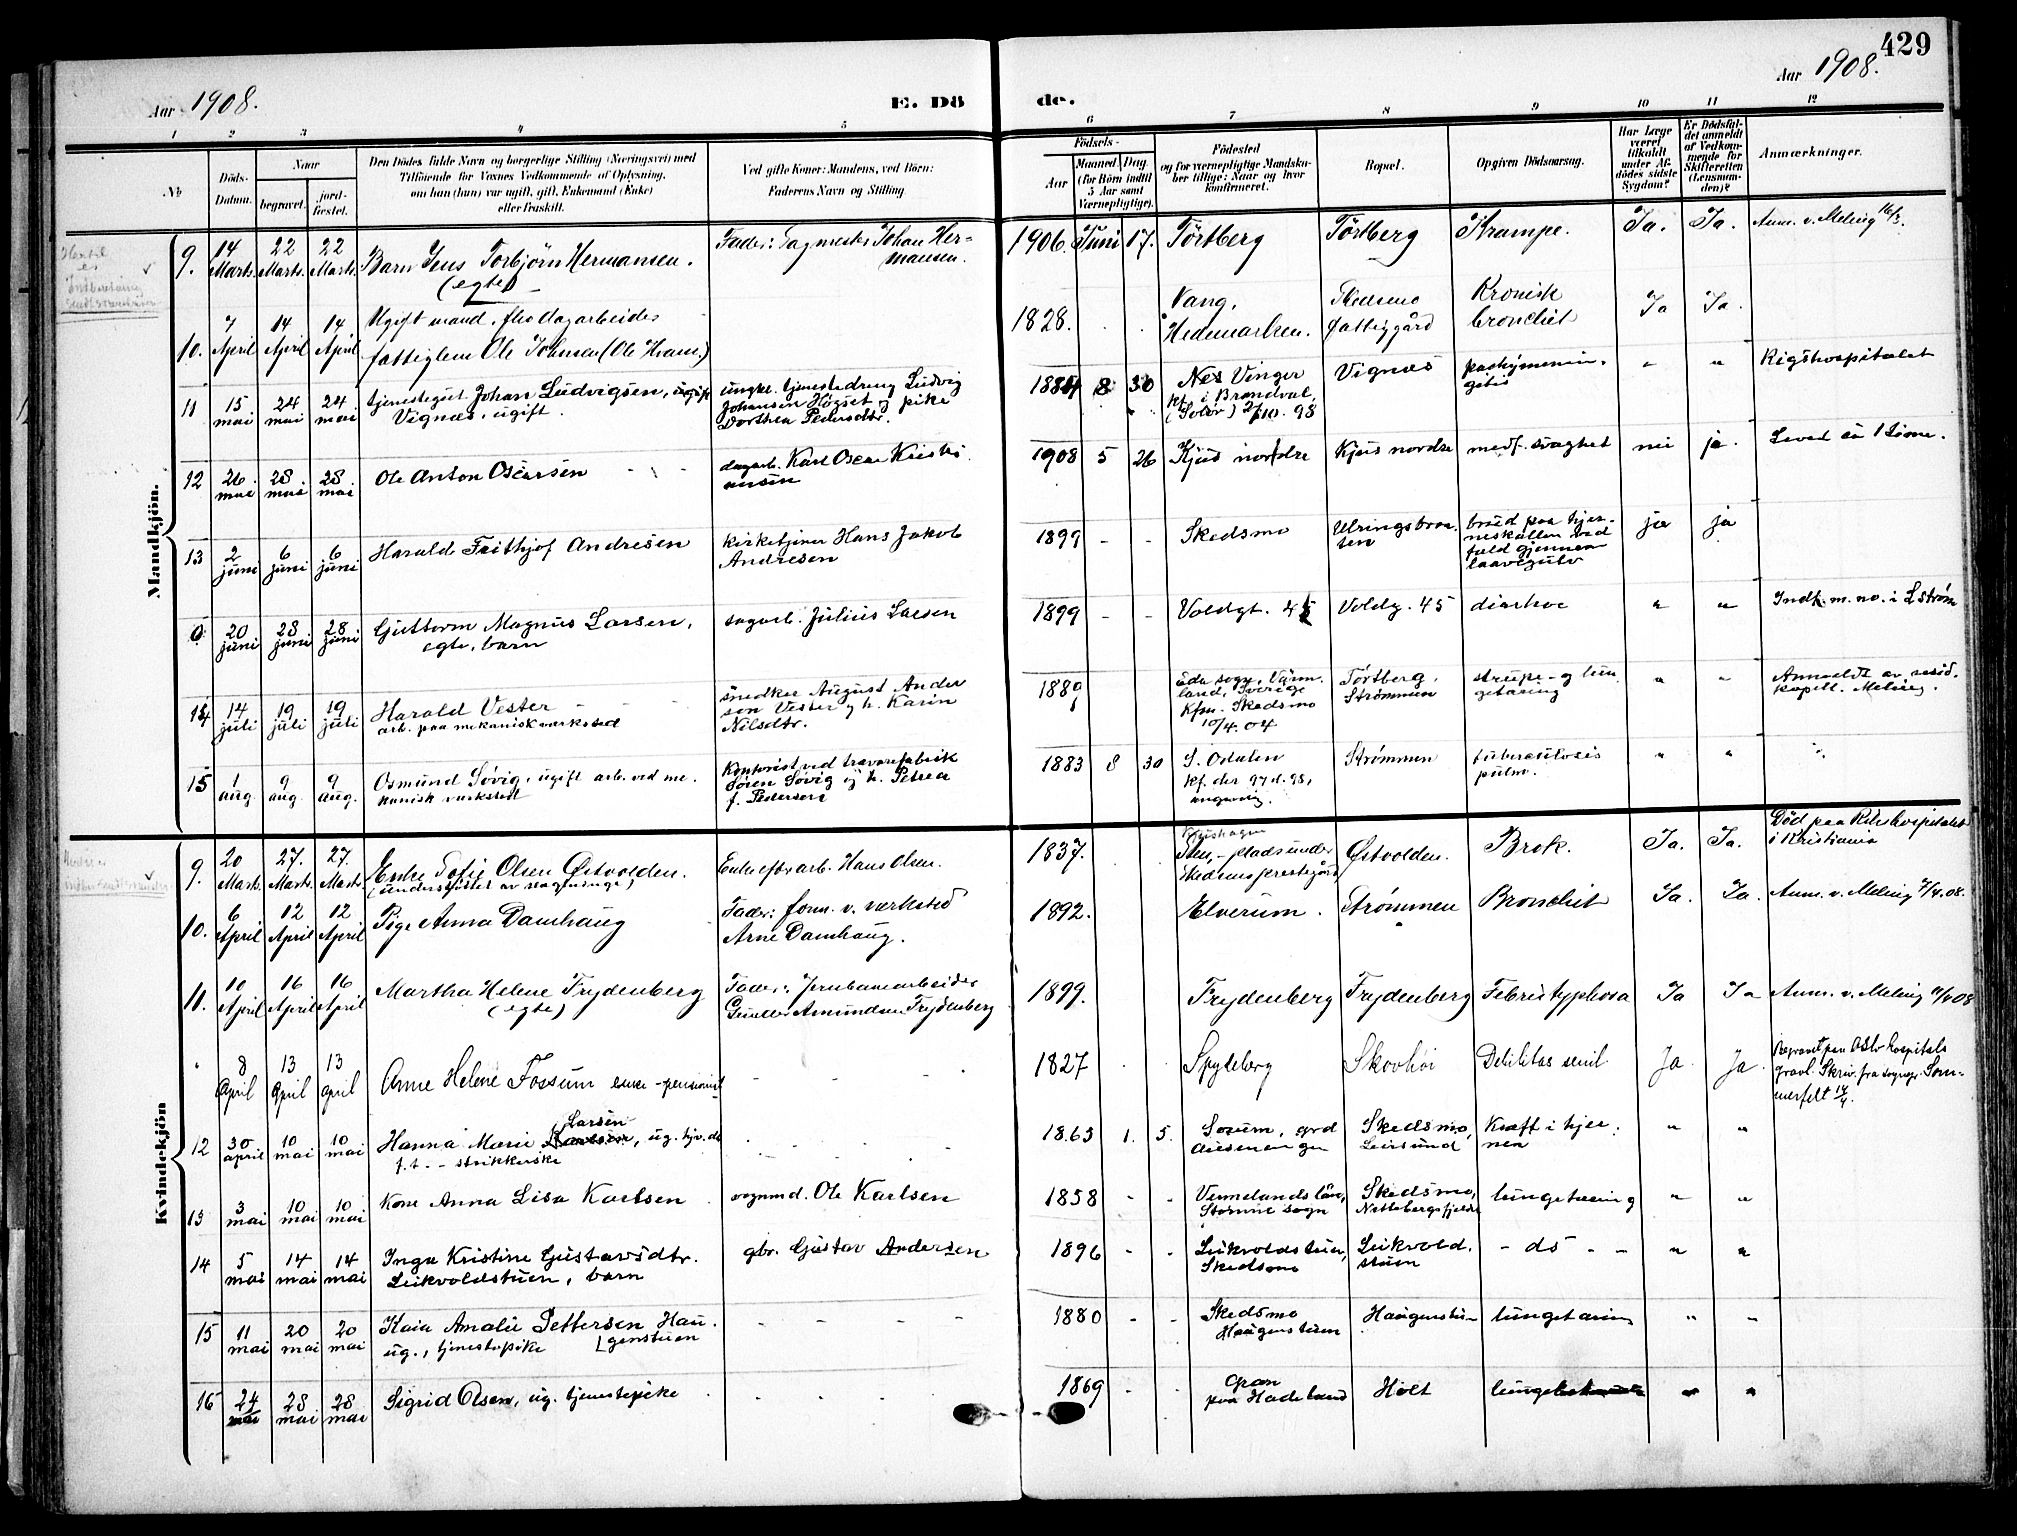 429
Aar 1908.
E. Dö
de.
Aar 1908.
1 2 3 4 5 6 7 8 9 10 11 12
No
Döds-Datum.
Naar
begravet.
jord-fæstet.
Den Dödes fulde Navn og borgerlige Stilling (Næringsvei) med
Tilföiende for Voxnes Vedkommende af Oplysning,
om han (hun) var ugift, gift, Enkemand (Enke)
eller fraskilt.
Ved gifte Koner: Mandens, ved Börn:
Faderens Navn og Stilling.
Födsels-
Aar
Maaned. Dag.
(for Börn indtil
5 Aar samt
Værnepligtige).
Födested
og for værnepligtige Mandska-
ber tillige: Naar og hvor
konfirmeret.
Bopæl.
Opgiven Dödsaarsag.
Har Læge
været
tilkaldt
under Af-
dödes sidste
Sygdom?
Er Dödsfal-
det anmeldt
af Vedkom-
mende for
Skifteretten
(Lensman-
den)?
Anmærkninger.
Mandkjön.
9. 14 Marts. 22 Marts. 22 Marts. Barn Jens Torbjørn Hermansen. (egte) Fader: Tagmester Johan Hermansen. 1906. Juni 17. Törtberg Törtberg Krampe. Ja. Ja. Anm. v. Meling 16/3.
10. 7 April 14 April 14 April Ugift mand, fhv dagarbeider
fattiglem Ole Johnsen (Ole Kram.) 1828. Vang, Hedemarken. Skedsmo fattiggård Kronisk bronchit Ja Ja.
11 15 mai 24 mai 24 mai tjenestegut Johan Ludvigsen, ugift
Vignæs, ugift. ungk. tjenestedreng Ludvig
Johansen Høgset og pike
Dorthea Pedersdtr. 1884 8 30 Nes Vinger
kf. i Brandval,
(Solør) 2/10. 98 Vignæs pachymenin-
gitis " " Rigshospitalet
12 26 mai 28 mai 28 mai Ole Anton Oscarsen dagarb. Karl Oscar Kristi
ansen 1908 5 26 Kjus nordre Kjus nordre medf. svaghet nei ja. Leved ca 1 time.
13 2 juni 6 juni 6 juni Harald Frithjof Andresen kirketjener Hans Jakob
Andresen 1899 - - Skedsmo braud paa hjer-
neskallen ved
fald gjennem
laavegulv ja ja
20 juni 28 juni 28 juni Guttorm Magnus Larsen,
egte, barn sagarb. Julius Larsen 1899 - - Voldgt. 45 Voldg. 45 diarhoe " " Indf. m. no. i Lstrøm
14 14 juli 19 juli 19 juli Harald Vester
arb. paa mekanisk verksted snedker August Ander
son Vester og h. Karin
Nilsdtr. 1889 Eda sogn, Värm-
land, Sverige
Kfm. Skedsmo
10/4. 04 Törtberg,
Strømmen strupe- og lun
getæring " " Anmeldt av resid.
kapell. Meling.
15 1 aug. 9 aug. 9 aug. Osmund Søvig, ugift arb. ved me
kanisk verksted Kontorist ved trævarefabrik
Sören Søvig og h. Petrea
f. Pedersen 1883 8 30 S. Odalen
kf. der 97 d. 98, Strømmen tuberculosis
pulm. " "
Kvindekjön
9. 20 Marts. 27. Marts. 27. Marts. Enke Sofie Olsen Østvolden.
(understøttet av slægtninge) Enke efter arb. Hans Olsen. 1837. plads under
Skedsmo prestegård Østvolden. Brok. Ja. Ja. Død paa Rikshospitalet
i Kristiania
10. 6 April 12 April 12 April Pige Anna Damhaug Fader: form. v. værksted
Arne Damhaug. 1892. Elverum. Strømmen Bronchit Ja. Ja. Anm. v. Meling 7/4.08.
11. 10 April 16 April 16 April Martha Helene Frydenberg
(egte) Fader: Jernbanearbeider
Amundsen Frydenberg 1899. Frydenberg Frydenberg Febris typhosa Ja Ja Anm. v. Meling 11/4 08
" 8 April 13 April 13 April Anne Helene Fossum enke - pensionist 1827 Spydeberg Skovhöi Debilitas senil Ja Ja Begravet paa Oslo hospitals
gravl. Skriv. fra sognepr. Som-
merfelt 14/4.
12 30 april 10 mai 10 mai Hanna Marie Larsen, ug. hjv. ds
f. t. - strikkerske 1863 1. 5. Sørum, grd Skedsmo,
Leirsund Kræft i hjer-
nen " "
13 3 mai 10 mai 10 mai Kone Anna Lisa Karlsen vognmd. Ole Karlsen 1858 - - Vermlands län,
Stomne sogn Skedsmo,
Nittebergsfjeldet lungetæring " "
14 5 mai 14 mai 14 mai Inga Kristine Gustavsdtr.
Leikvoldstuen, barn gbr. Gustav Andersen 1896 - - Leikvoldstuen,
Skedsmo Leikvold-
stuen - ds - - " "
15 11 mai 20 mai 20 mai Kaia Amalie Pettersen Hau-
genstuen
ug., tjenestepike 1880 - - Skedsmo
Haugenstuen Haugenstu- lungetæring " "
16 24 mai 28 mai 28 mai Sigrid Olsen, ug. tjenestepike 1869 - - Gran
paa Hadeland Holt " "